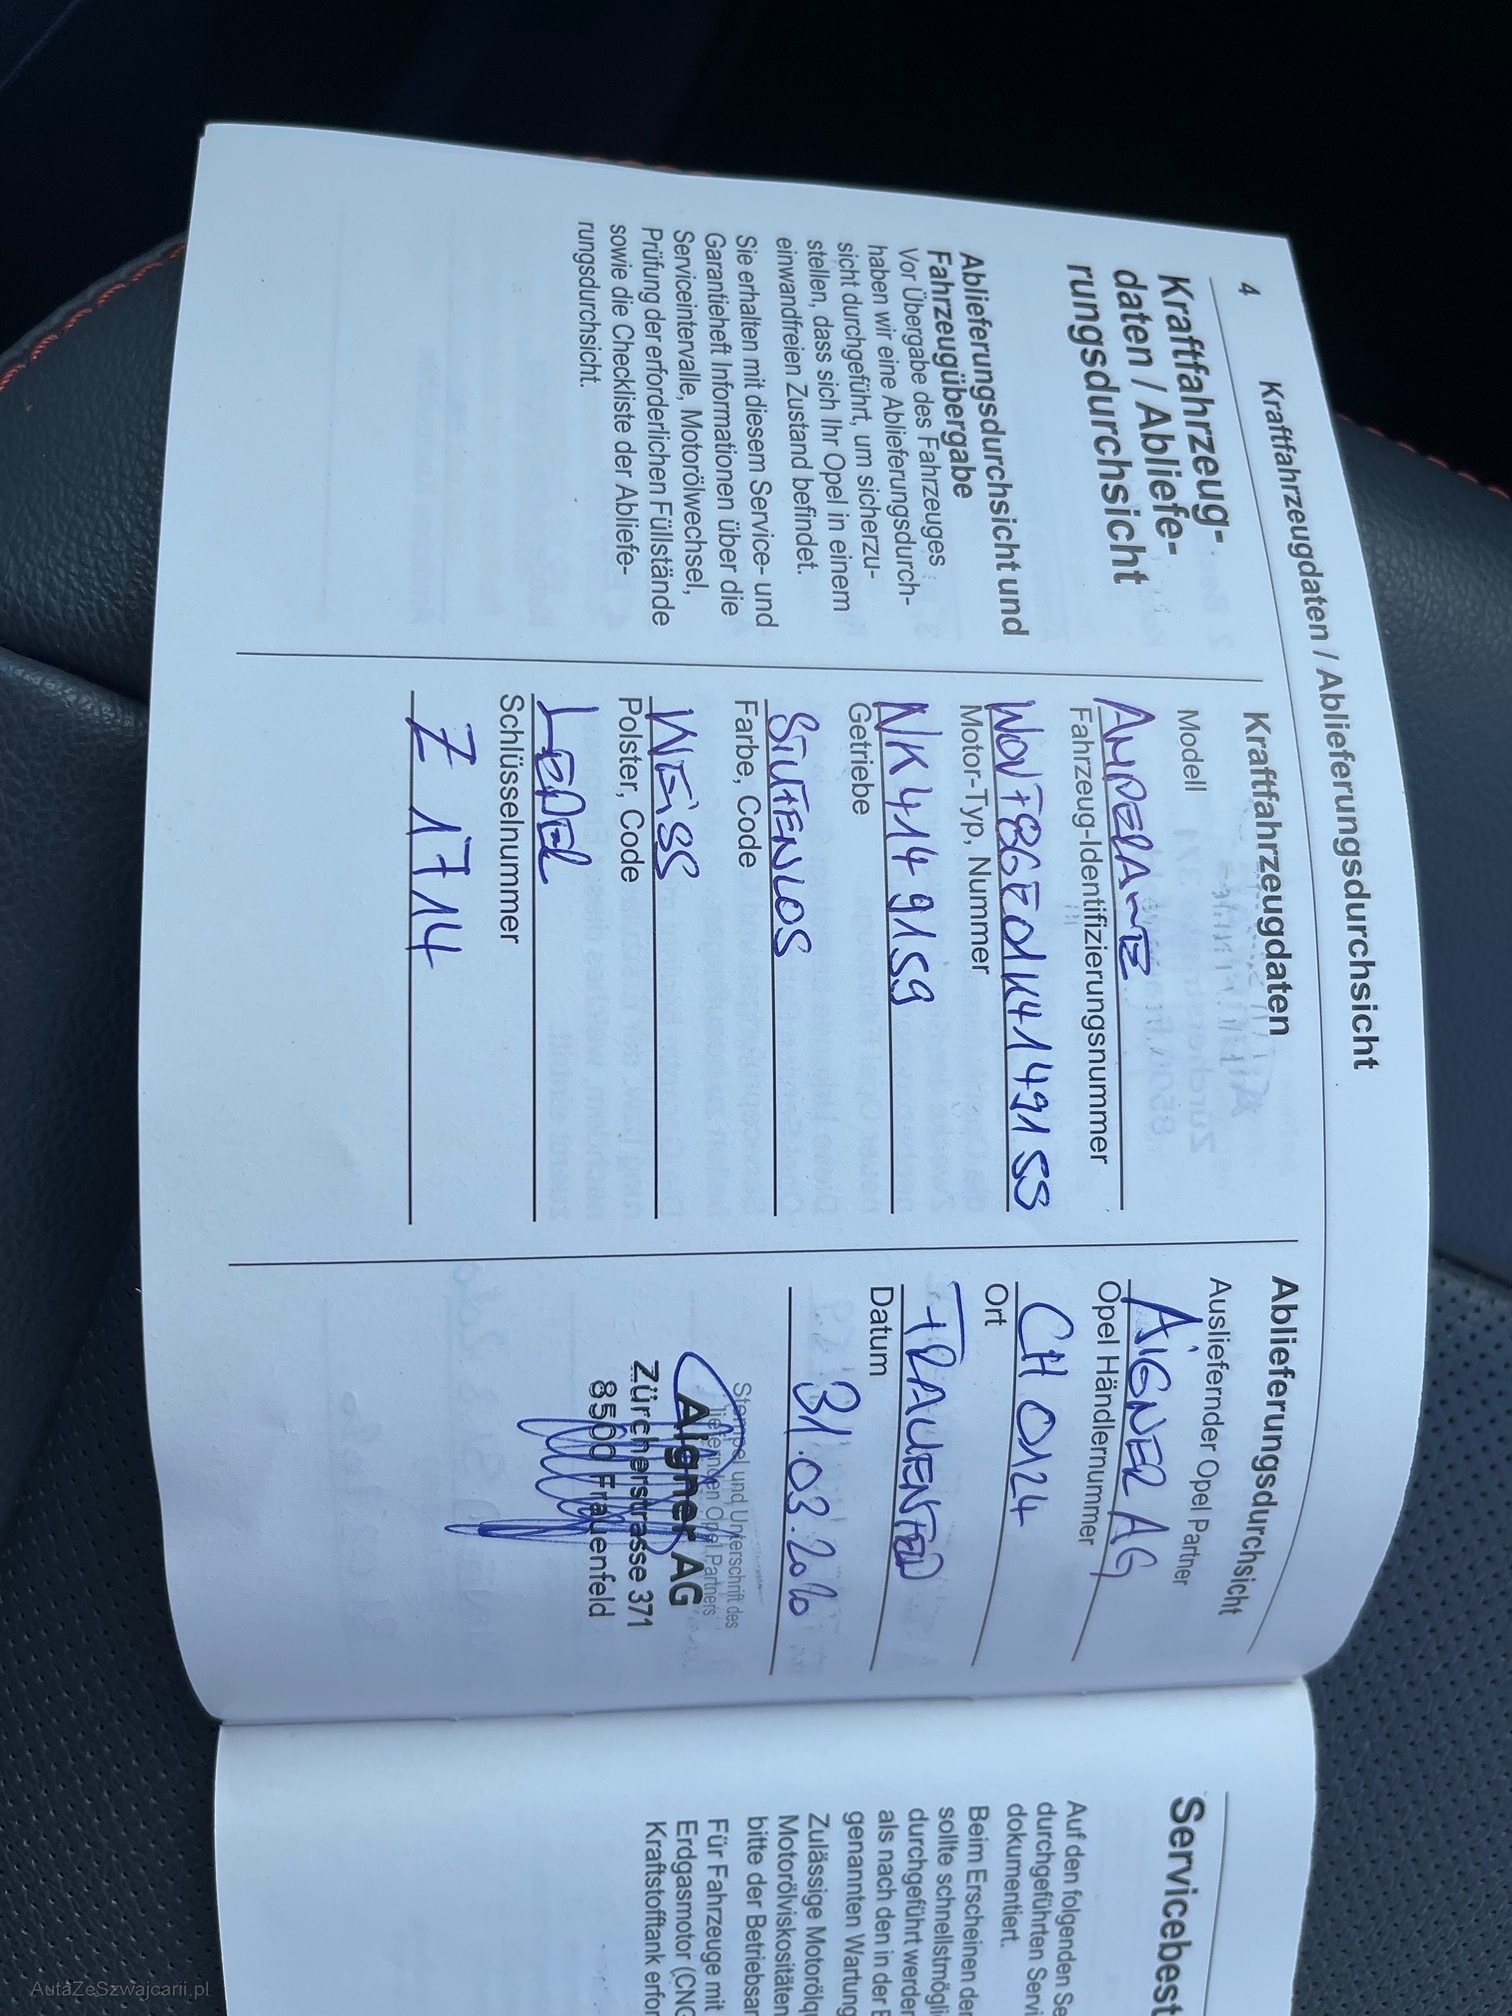 4
Kraftfahrzeugdaten / Ablieferungsdurchsicht
Kraftfahrzeug-
daten / Abliefe-
rungsdurchsicht
Ablieferungsdurchsicht und
Fahrzeugübergabe
Vor Übergabe des Fahrzeuges
haben wir eine Ablieferungsdurch-
sicht durchgeführt, um sicherzu-
stellen, dass sich Ihr Opel in einem
einwandfreien Zustand befindet.
Sie erhalten mit diesem Service- und
Garantieheft Informationen über die
Serviceintervalle, Motorölwechsel,
Prüfung der erforderlichen Füllstände
sowie die Checkliste der Abliefe-
rungsdurchsicht.
Kraftfahrzeugdaten
Modell
Fahrzeug-Identifizierungsnummer
Motor-Typ, Nummer
NK4149159
Getriebe
STUFENLOS
Farbe, Code
WEISS
Polster, Code
LEDER
Schlüsselnummer
Z 1714
Ablieferungsdurchsicht
Ausliefernder Opel Partner
AIGNER AG
Opel Händlernummer
CH 0124
Ort
Datum
31.03.2020
Stempel und Unterschrift des
liefernden Opel Partners
Aigner AG
Zürcherstrasse 371
8500 Frauenfeld
Servicebest
Auf den folgenden Se
durchgeführten Servi
dokumentiert.
Beim Erscheinen der
sollte schnellstmögli
durchgeführt werden
als nach den in der B
genannten Wartung
Zulässige Motorölqu
Motorölviskositäten
bitte der Betriebsan
Für Fahrzeuge mit
Erdgasmotor (CNG
Kraftstofftank erfor
AutaZeSzwajcarii.pl